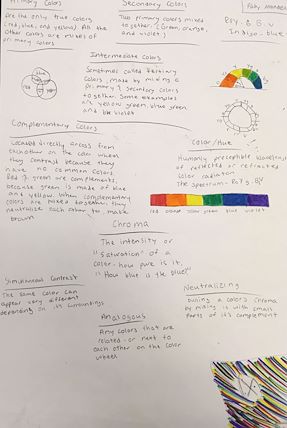 Primary Colors
Are the only true colors
(red, blue, and yellow). All the
other colors are mixes of
primary colors
Secondary Colors
Two primary colors mixed
together. (Green, orange,
and violet)
Roy. G. B. V
Indigo - blue
Intermediate Colors
Sometimes called tertiary
colors, made by mixing a
primary & secondary colors
together. Some examples
are yellow green, blue green
and blue violet
Complementary Colors
Located directly across from
eachother on the color wheel
They contrast because they
have no common colors.
Red & green are complements,
because green is made of blue
and yellow. When complementary
colors are mixed together, they
neutralize each other to make
brown
Color/Hue
Humanly perceptible wavelengths
of reflected or refracted
color radiation
The spectrum - Roy G. BV
red orange yellow green blue violet
Chroma
The intensity or
"Saturation" of a
color - how pure is it,
"How blue is the blue?"
Simultaneous Contrast
The same color can
appear very different
depending on its surroundings
Neutralizing
Dulling a color's chroma
by mixing it with small
parts of its complement
Analogous
Any colors that are
related - or next to
each other on the color
wheel